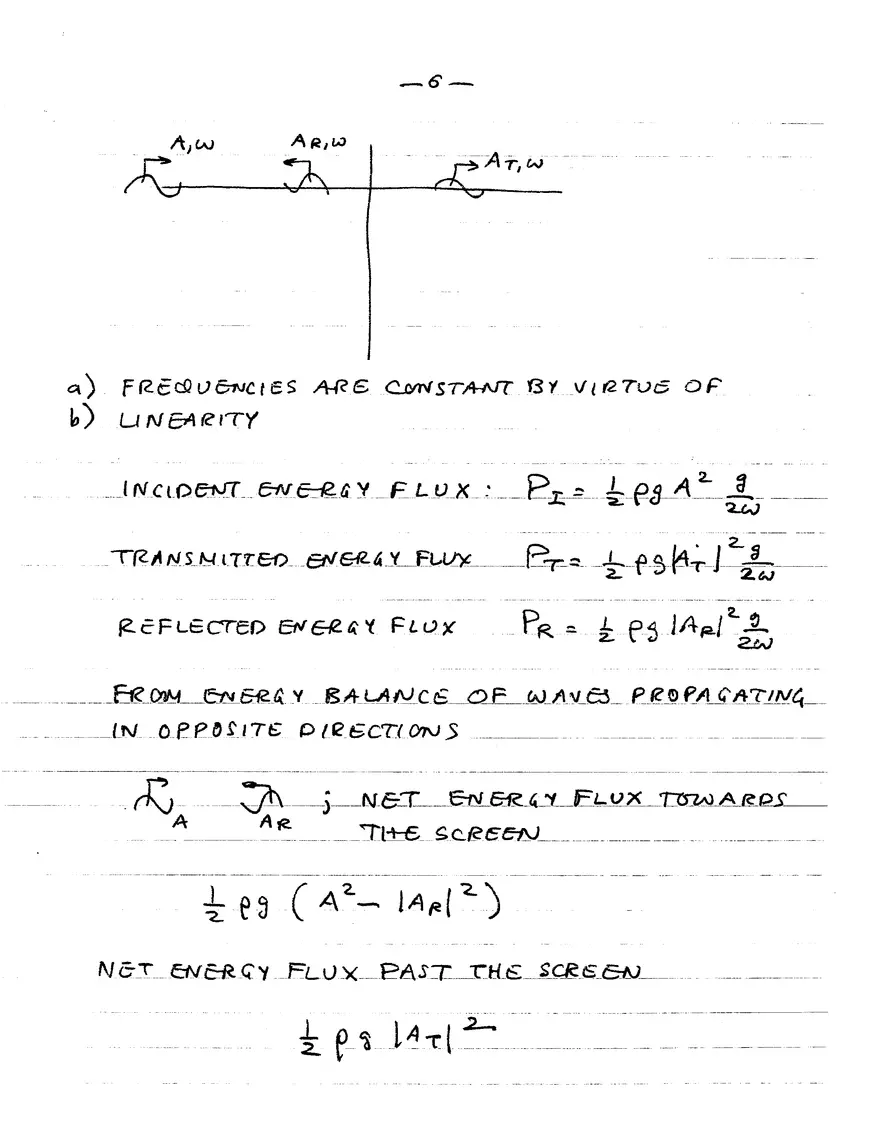 — 6 —
A, ω A_R, ω
A_T, ω
a) FREQUENCIES ARE CONSTANT BY VIRTUE OF
b) LINEARITY
INCIDENT ENERGY FLUX : P_I = 1/2 ρg A² g/2ω
TRANSMITTED ENERGY FLUX P_T = 1/2 ρg |A_T|² g/2ω
REFLECTED ENERGY FLUX P_R = 1/2 ρg |A_R|² g/2ω
FROM ENERGY BALANCE OF WAVES PROPAGATING
IN OPPOSITE DIRECTIONS
A A_R ; NET ENERGY FLUX TOWARDS
THE SCREEN
1/2 ρg ( A² – |A_R|² )
NET ENERGY FLUX PAST THE SCREEN
1/2 ρg |A_T|²